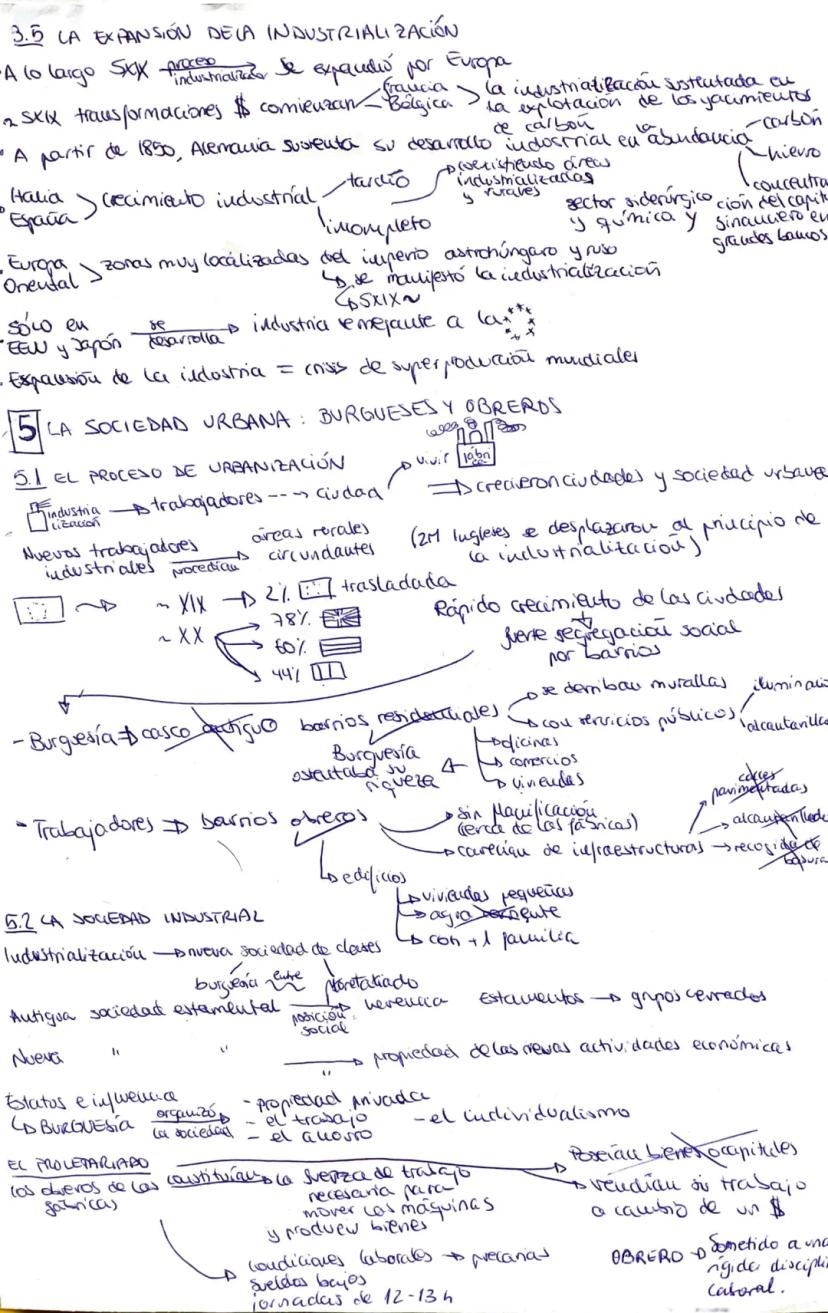 3.5 LA EXPANSIÓN DE LA INDUSTRIALIZACIÓN
· A lo largo SXIX proceso industrializador se expandió por Europa
~ SXIX transformaciones $ comienzan Francia Bélgica la industrialización sustentada en
la explotación de los yacimientos
de carbón
· A partir de 1850, Alemania sustenta su desarrollo industrial en la abundancia carbón
hierro
concentra
ción del capit
financiero en
grandes bancos
sector siderúrgico
y química y
· Italia
España crecimiento industrial tardío
incompleto
coexistiendo áreas
industrializadas
y rurales
· Europa
Oriental zonas muy localizadas del imperio astrohúngaro y ruso
se manifestó la industrialización
SXIX ~
· Sólo en
EEUU y Japón se desarrolla industria semejante a la
· Expansión de la industria = crisis de superproducción mundiales
5 LA SOCIEDAD URBANA: BURGUESES Y OBREROS
5.1 EL PROCESO DE URBANIZACIÓN
industria
lización trabajadores ciudad vivir fábri
ca
crecieron ciudades y sociedad urbana
Nuevos trabajadores
industriales procedían áreas rurales
circundantes
(2M Ingleses se desplazaron al principio de
la industrialización)
~ XIX 2% trasladada
~ XX 78%
60%
44%
Rápido crecimiento de las ciudades
fuerte segregación social
por barrios
- Burguesía casco antiguo barrios residenciales
se derriban murallas
con servicios públicos
iluminació
alcantarilla
oficinas
comercios
viviendas
Burguesía
ostentaba su
riqueza
- Trabajadores barrios obreros
sin planificación
(cerca de las fábricas)
carecían de infraestructuras
calles
pavimentadas
alcantarillado
recogida de
basura
edificios
viviendas pequeñas
agua corriente
con +1 familia
5.2 LA SOCIEDAD INDUSTRIAL
Industrialización nueva sociedad de clases
burguesía entre proletariado
Antigua sociedad estamental posición
social herencia Estamentos grupos cerrados
Nueva " " " propiedad de las nuevas actividades económicas
Estatus e influencia
BURGUESÍA organizó
la sociedad
- propiedad privada
- el trabajo
- el ahorro
- el individualismo
EL PROLETARIADO
los obreros de las
fábricas constituían la fuerza de trabajo
necesaria para
mover las máquinas
y producir bienes
Poseían bienes o capitales
vendían su trabajo
a cambio de un $
condiciones laborales precarias
sueldos bajos
jornadas de 12-13h
OBRERO Sometido a una
rígida discipli
laboral.